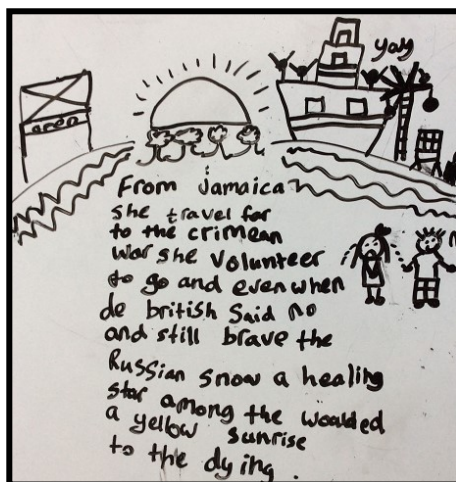 yay
From Jamaica
she travel far
to the crimean
war she volunteer
to go and even when
de british said no
and still brave the
Russian snow a healing
star among the woulded
a yellow sunrise
to the dying.